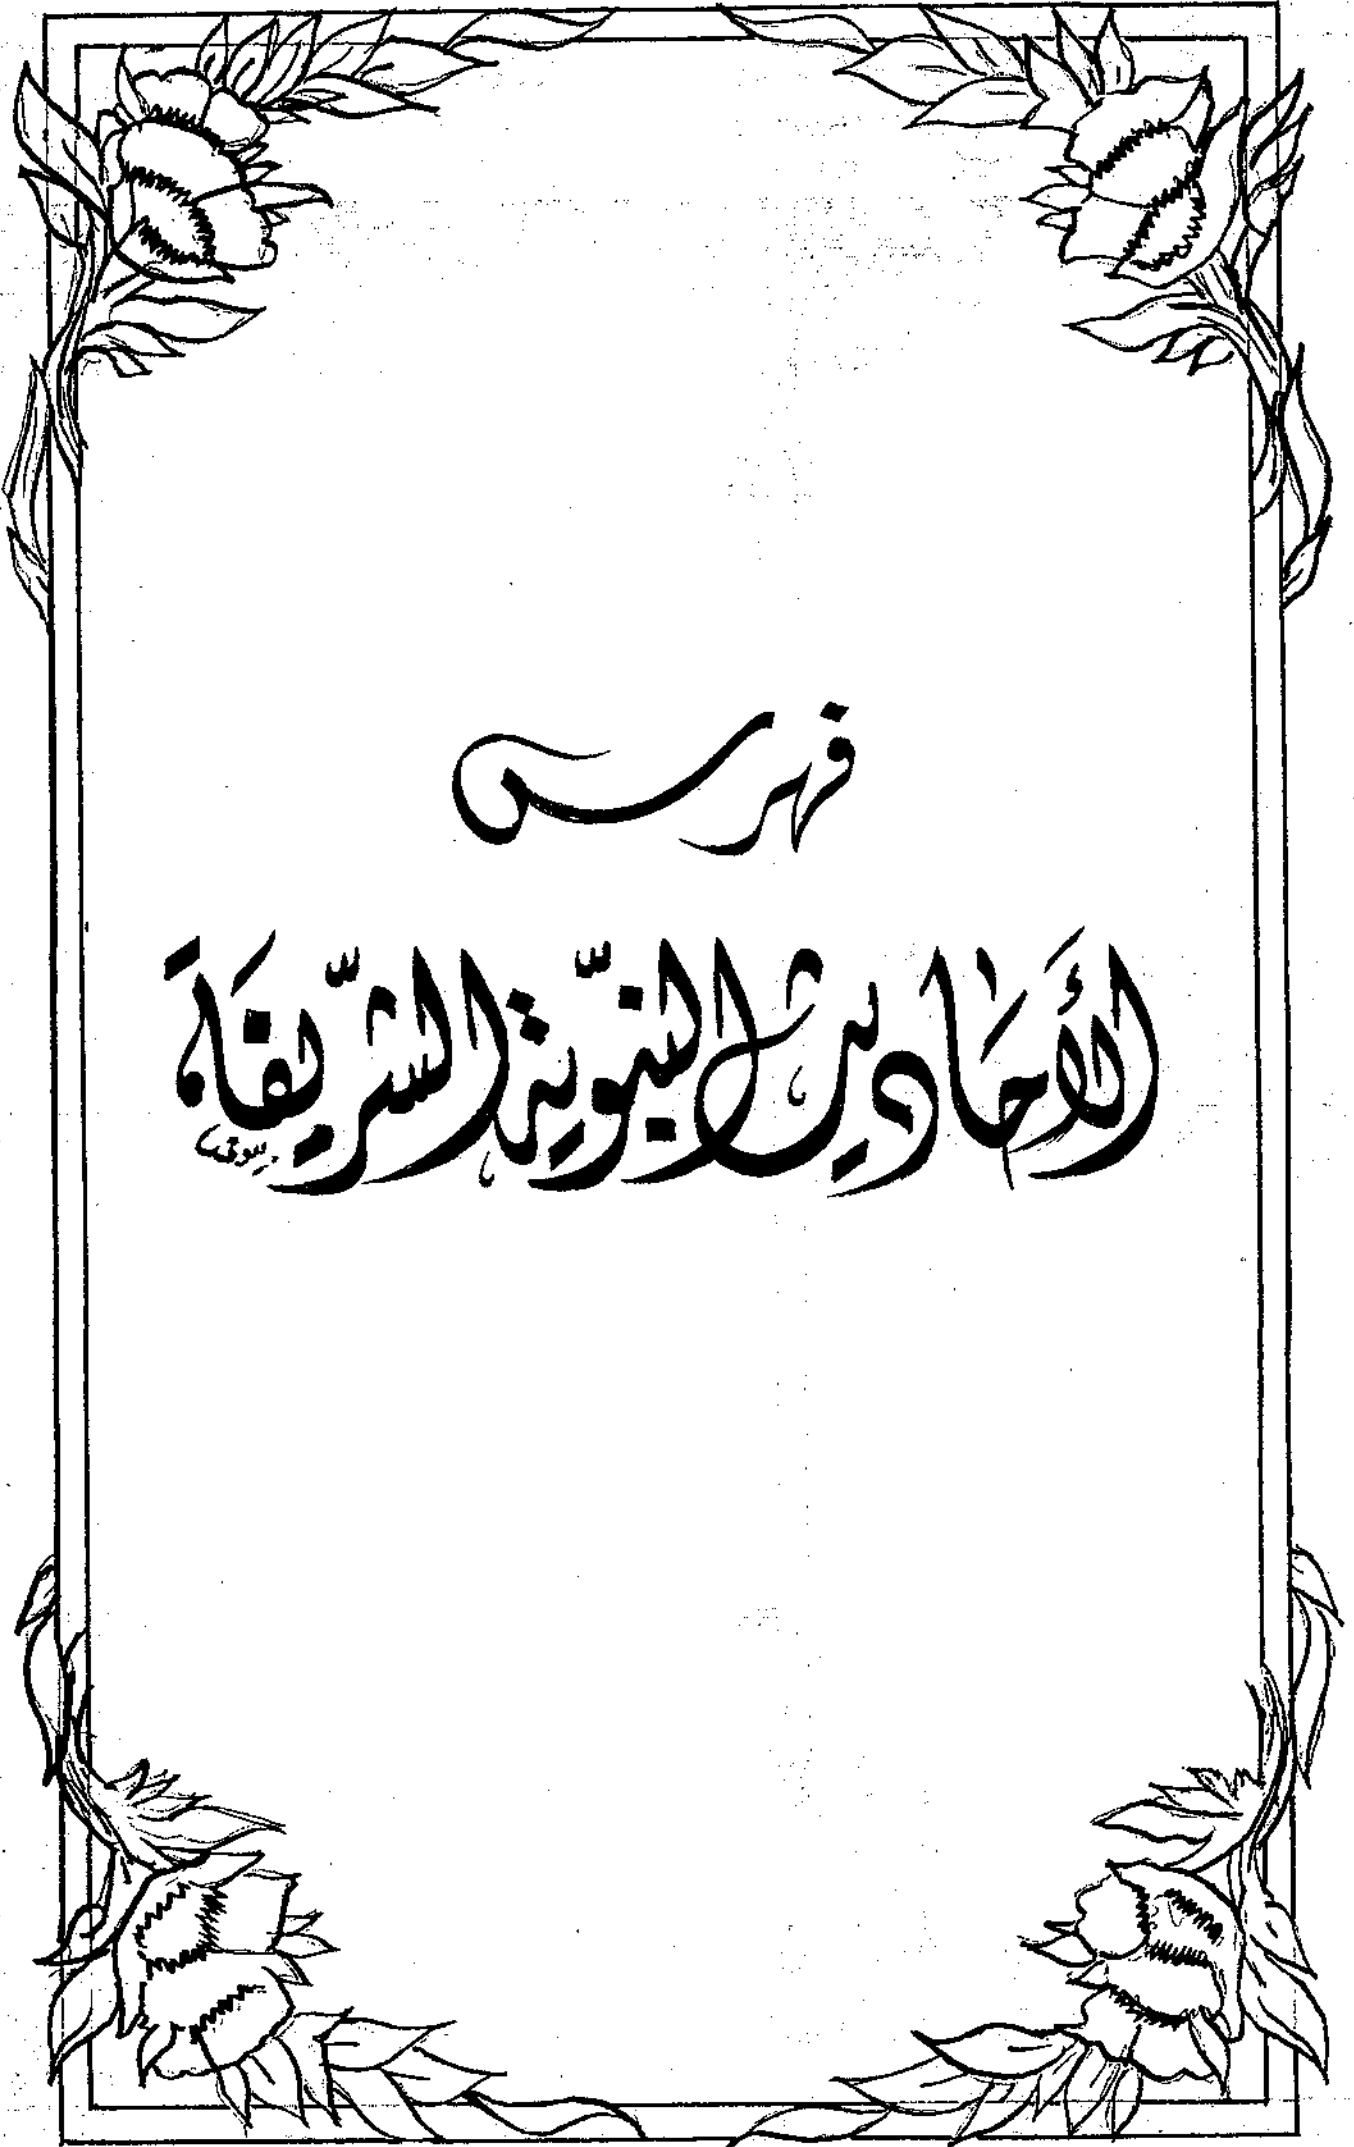 فهرس
الأحاديث النبويّة الشّريفَة